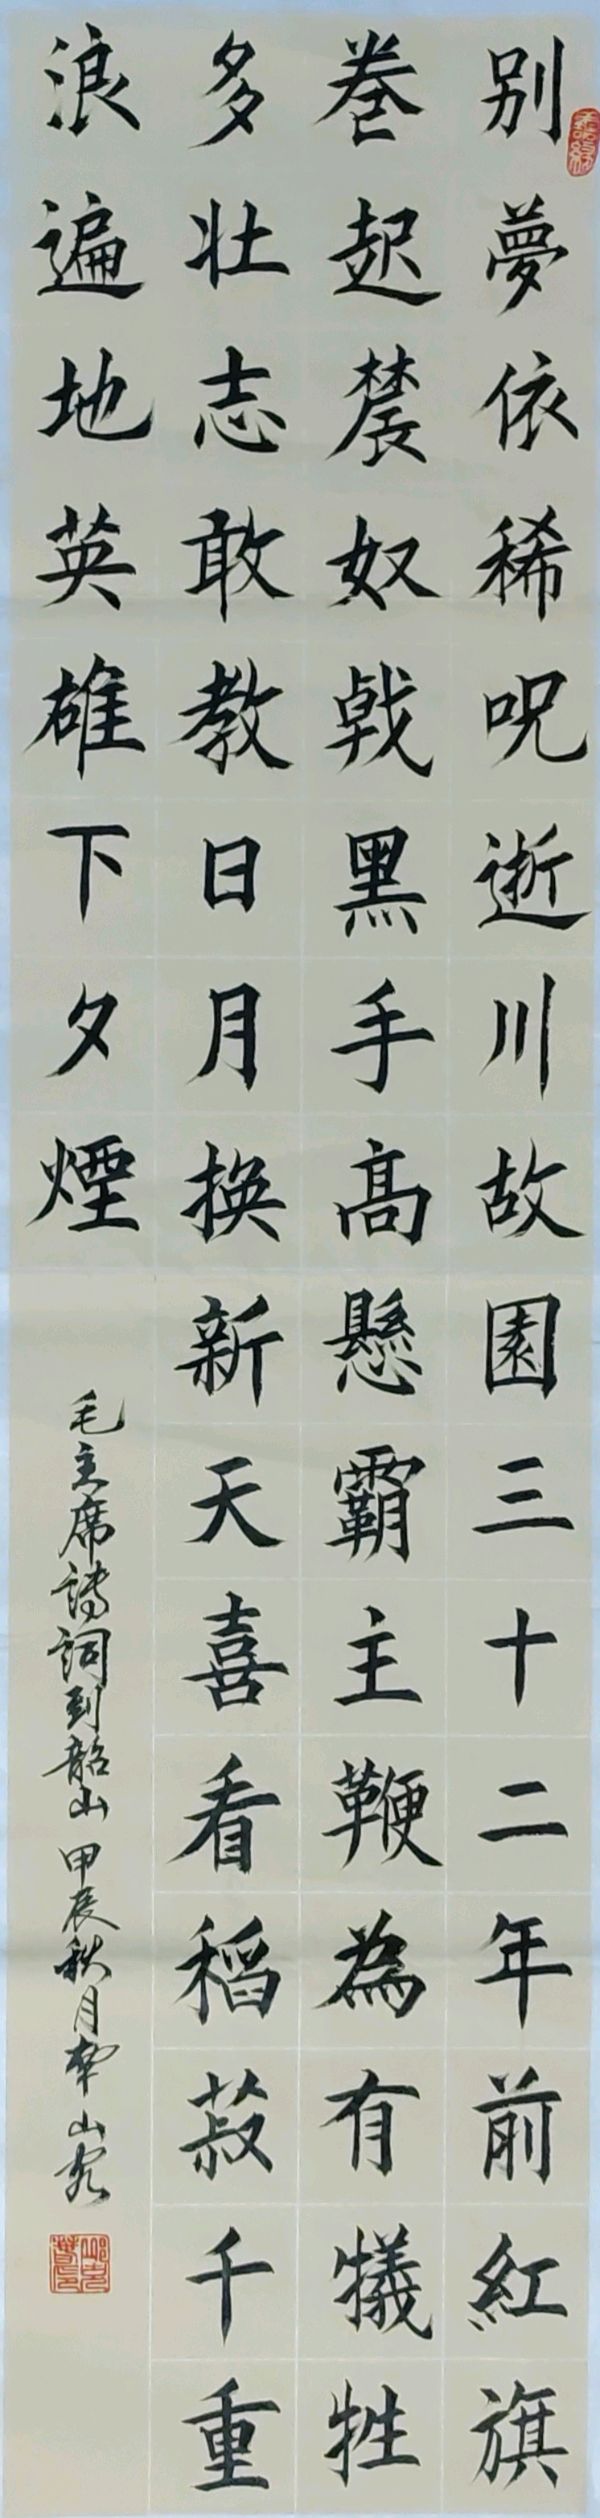 别夢依稀呪逝川故園三十二年前紅旗
巻起農奴戟黑手高懸霸主鞭為有犠牲
多壮志敢教日月换新天喜看稻菽千重
浪遍地英雄下夕煙
毛主席詩詞到韶山 甲辰秋月 山